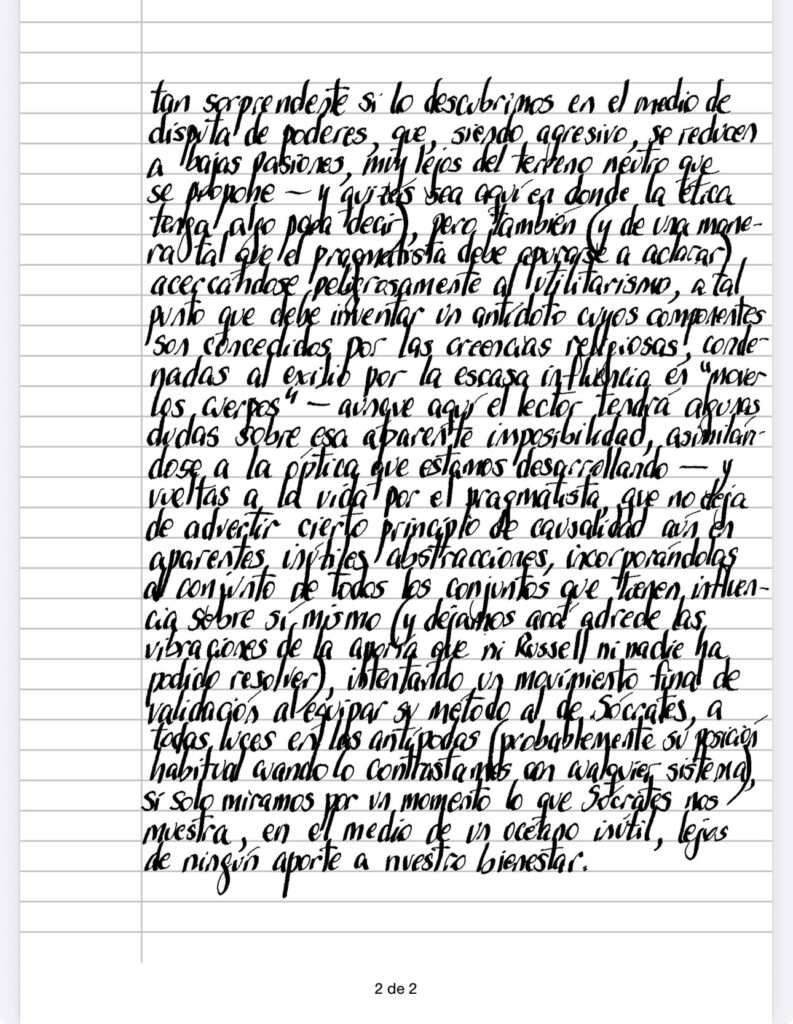 tan sorprendente si lo descubrimos en el medio de
disputa de poderes, que, siendo agresivo, se reducen
a bajas pasiones, muy lejos del terreno neutro que
se propone — y quizás sea aquí en donde la ética
tenga algo para decir), pero también (y de una mane-
ra tal que el pragmatista debe apurarse a aclarar)
acercándose peligrosamente al utilitarismo, a tal
punto que debe inventar un antídoto cuyos componentes
son concedidos por las creencias religiosas, conde-
nadas al exilio por la escasa influencia en "mover
los cuerpos" — aunque aquí el lector tendrá algunas
dudas sobre esa aparente imposibilidad, asimilán-
dose a la óptica que estamos desarrollando — y
vueltas a la vida por el pragmatista, que no deja
de advertir cierto principio de causalidad aún en
aparentes inútiles abstracciones, incorporándolas
al conjunto de todos los conjuntos que tienen influen-
cia sobre sí mismo (y dejamos acá adrede las
vibraciones de la aporía que ni Russell ni nadie ha
podido resolver), intentando un movimiento final de
validación al equipar su método al de Sócrates, a
todas luces en las antípodas (probablemente su posición
habitual cuando lo contrastamos con cualquier sistema),
si solo miramos por un momento lo que Sócrates nos
muestra, en el medio de un océano inútil, lejos
de ningún aporte a nuestro bienestar.
2 de 2